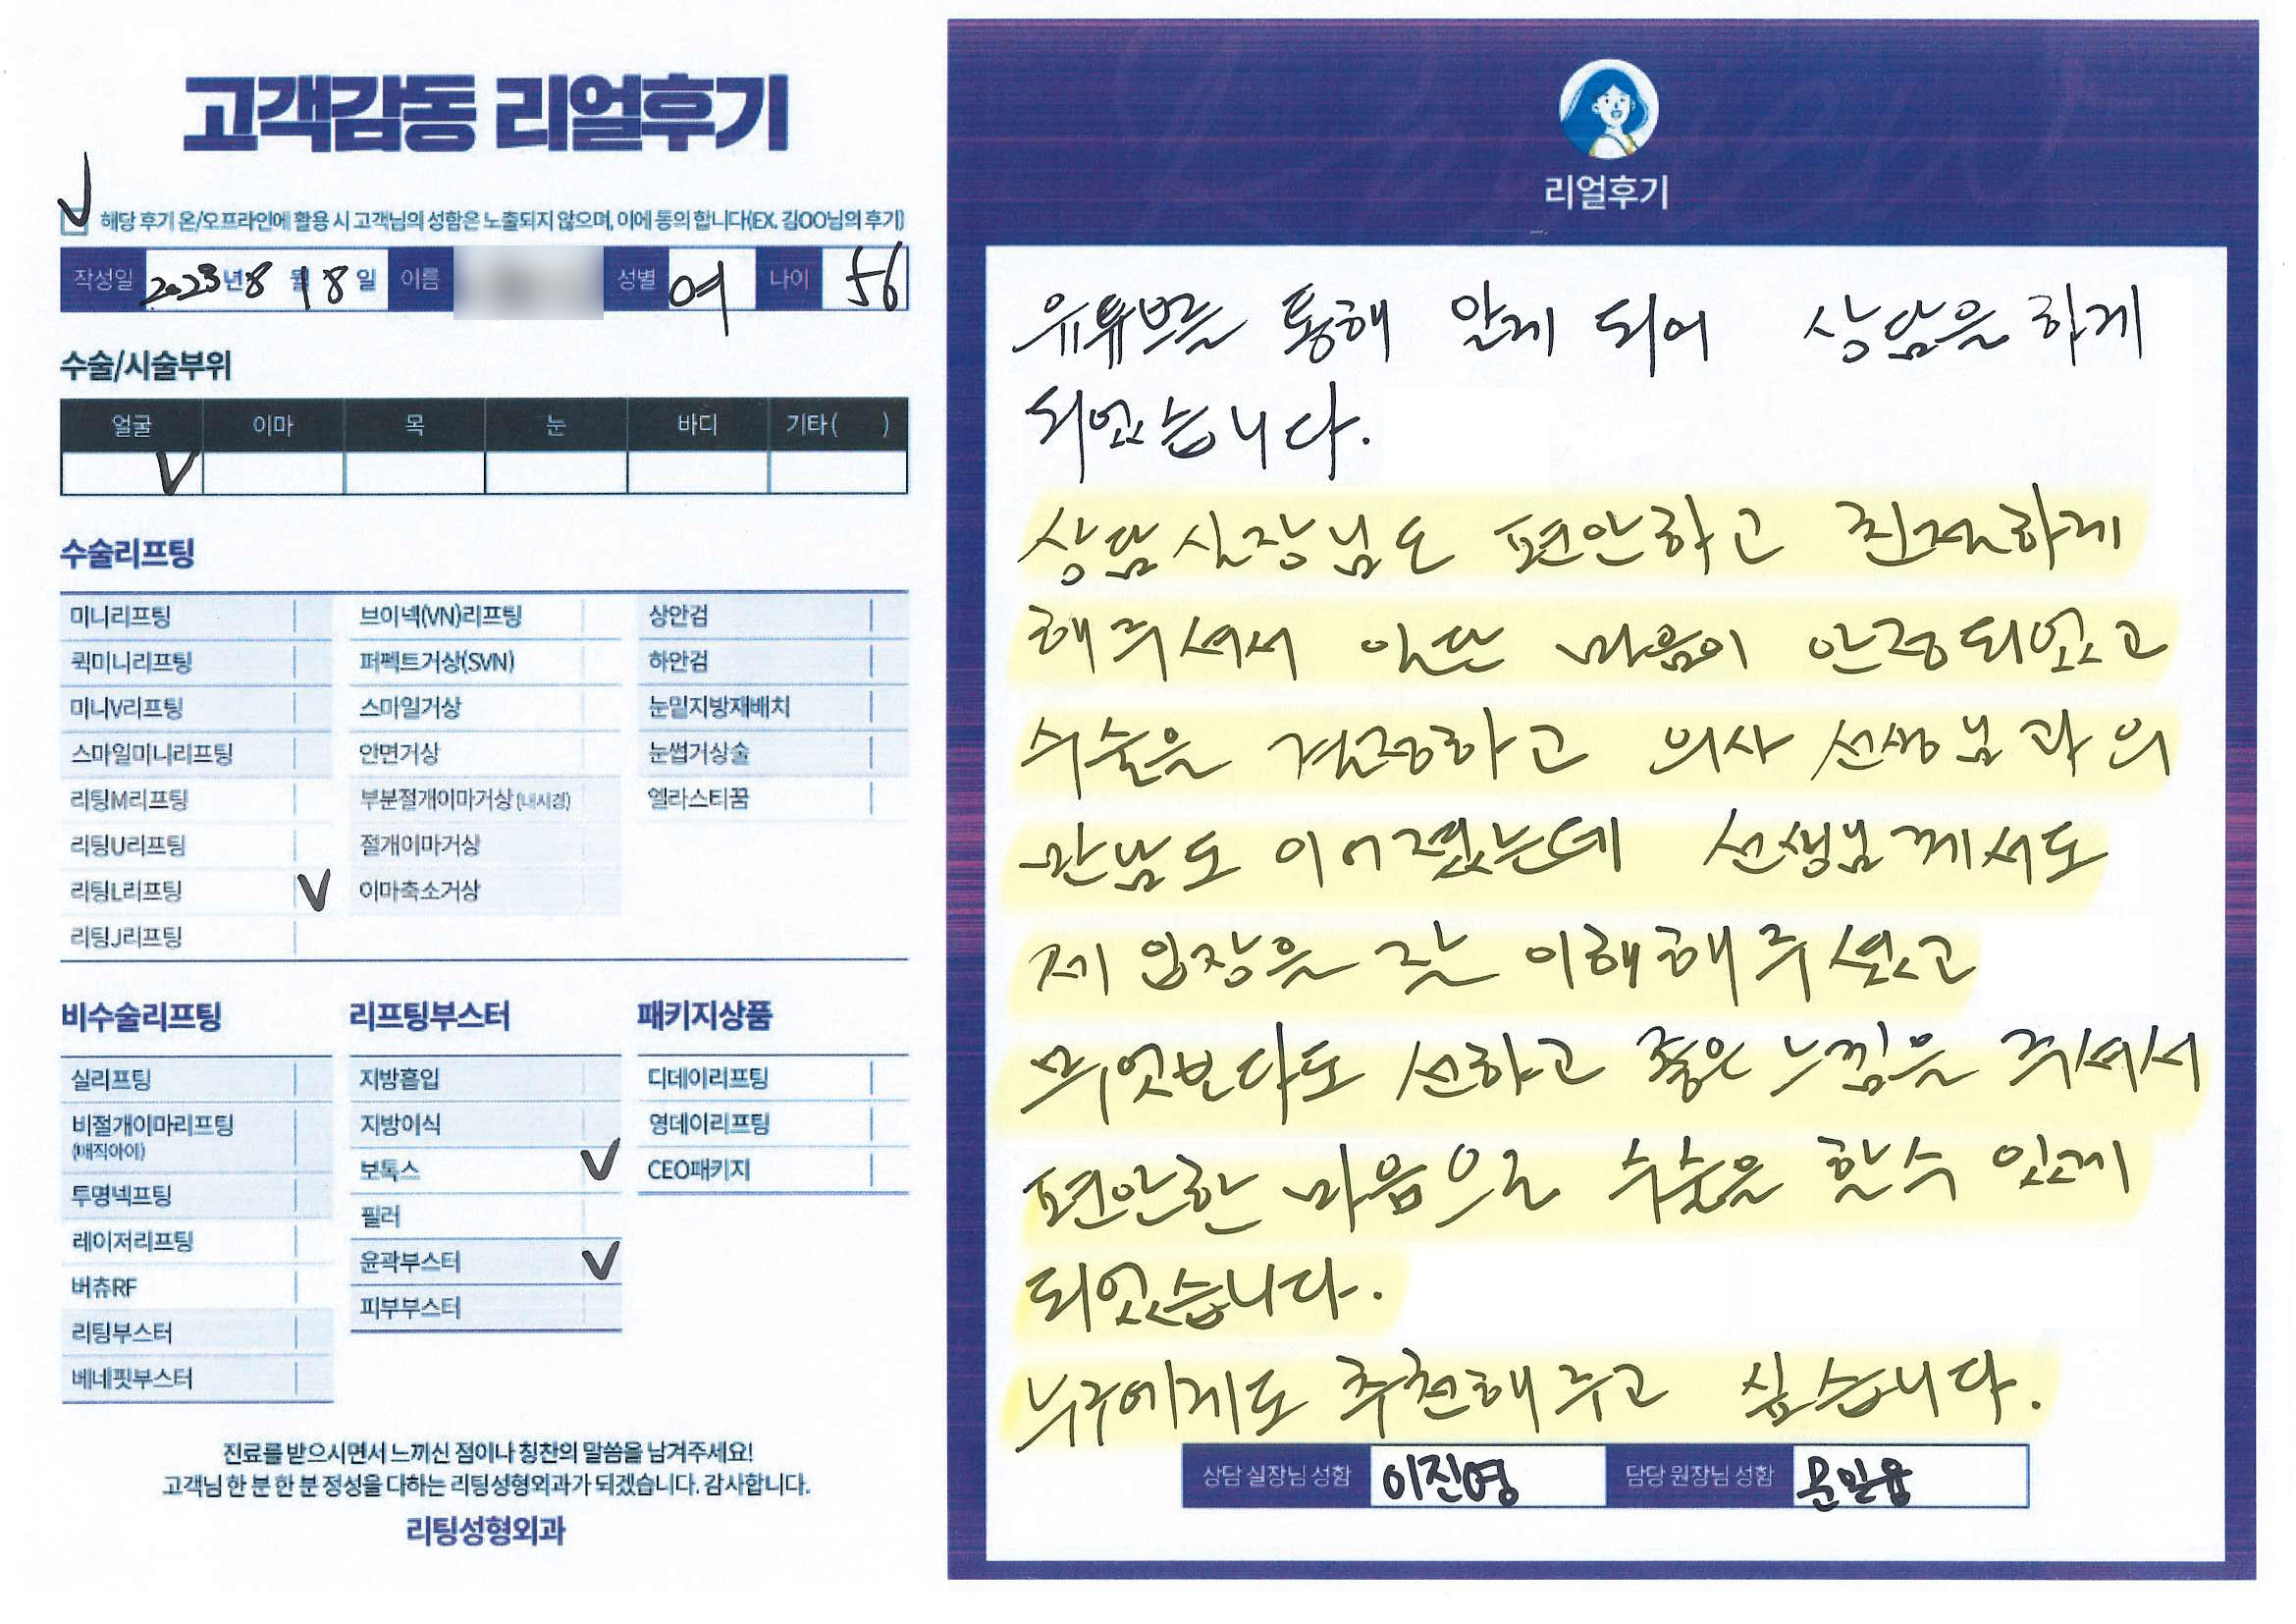 고객감동 리얼후기
해당 후기 온/오프라인에 활용 시 고객님의 성함은 노출되지 않으며, 이에 동의 합니다(EX. 김OO님의 후기)
작성일 2023년 8월 18일 이름 성별 여 나이 56
수술/시술부위
얼굴 이마 목 눈 바디 기타( )
V
수술리프팅
미니리프팅 브이넥(VN)리프팅 상안검
퀵미니리프팅 퍼펙트거상(SVN) 하안검
미니V리프팅 스마일거상 눈밑지방재배치
스마일미니리프팅 안면거상 눈썹거상술
리팅M리프팅 부분절개이마거상(내시경) 엘라스티꿈
리팅U리프팅 절개이마거상
리팅L리프팅 V 이마축소거상
리팅J리프팅
비수술리프팅 리프팅부스터 패키지상품
실리프팅 지방흡입 디데이리프팅
비절개이마리프팅 지방이식 영데이리프팅
(매직아이)
보톡스 V CEO패키지
투명넥프팅 필러
레이저리프팅 윤곽부스터 V
버츄RF 피부부스터
리팅부스터
베네핏부스터
진료를 받으시면서 느끼신 점이나 칭찬의 말씀을 남겨주세요!
고객님 한 분 한 분 정성을 다하는 리팅성형외과가 되겠습니다. 감사합니다.
리팅성형외과
리얼후기
유튜브를 통해 알게 되어 상담을 하게
되었습니다.
상담실장님도 편안하고 친절하게
해주셔서 일단 마음이 안정되었고
수술을 결정하고 의사 선생님과의
만남도 이어졌는데 선생님께서도
제 입장을 잘 이해해주셨고
무엇보다도 선하고 좋은 느낌을 주셔서
편안한 마음으로 수술을 할수 있게
되었습니다.
누구에게도 추천해주고 싶습니다.
상담 실장님 성함 이진영 담당 원장님 성함